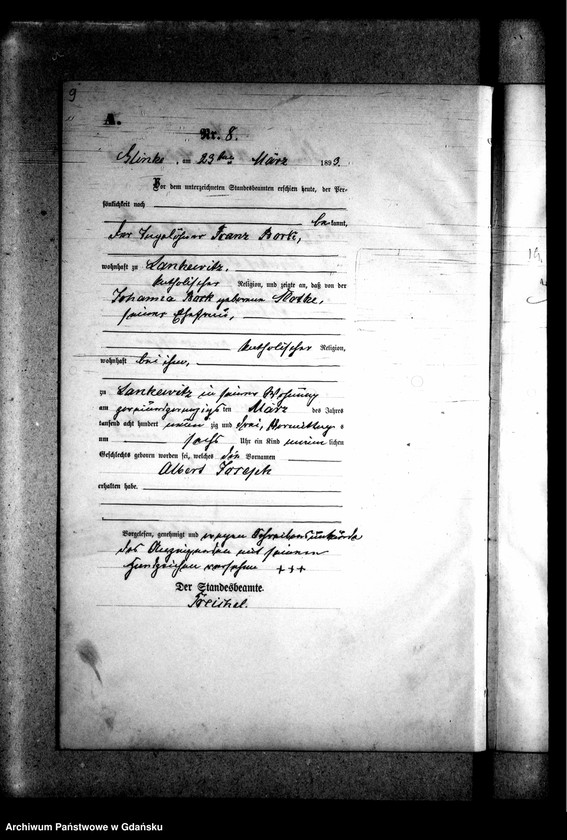 9
A.
Nr. 8.
Glinke, am 23ten März 1893.
Vor dem unterzeichneten Standesbeamten erschien heute, der Per-
sönlichkeit nach
bekannt,
der Franz Bork,
wohnhaft zu Lankewitz,
katholischer Religion, und zeigte an, daß von der
Johanna Bork geborenen
seiner Ehefrau,
katholischer Religion,
wohnhaft bei ihm,
zu Lankewitz in seiner Wohnung
am zweiundzwanzigsten März des Jahres
tausend acht hundert neunzig und drei, Vormittags
um sechs Uhr ein Kind männlichen
Geschlechts geboren worden sei, welches den Vornamen
Albert Joseph
erhalten habe.
Vorgelesen, genehmigt und wegen Schreibensunkunde
des Anzeigenden mit seinem
Handzeichen versehen +++
Der Standesbeamte.
Treichel.
Archiwum Państwowe w Gdańsku